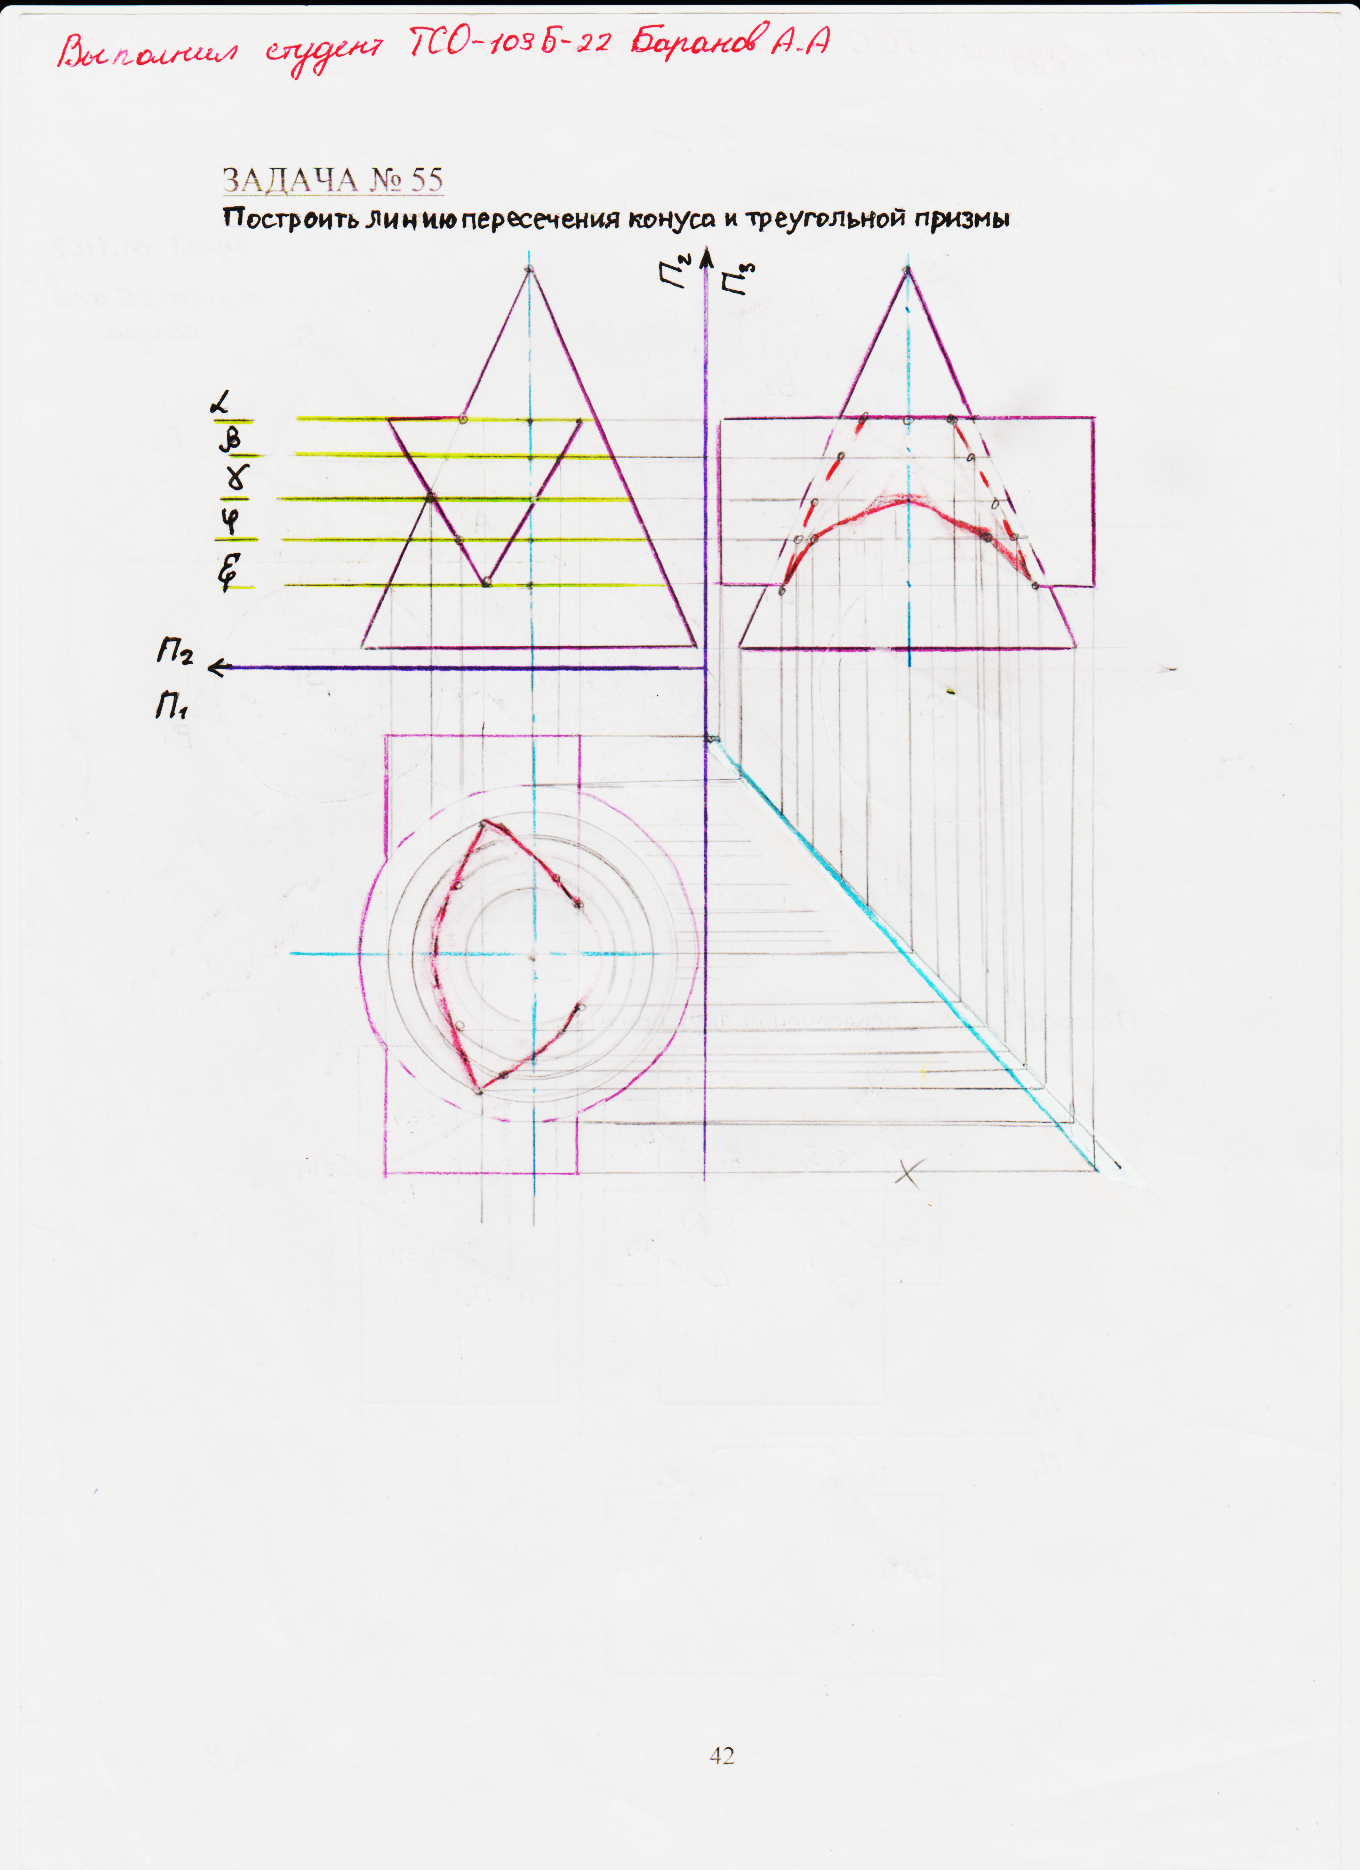 Выполнил студент ТСО-103Б-22 Баранов А.А
ЗАДАЧА № 55
Построить линию пересечения конуса и треугольной призмы
П2 П3
α
β
γ
φ
ξ
П2
П1
X
42